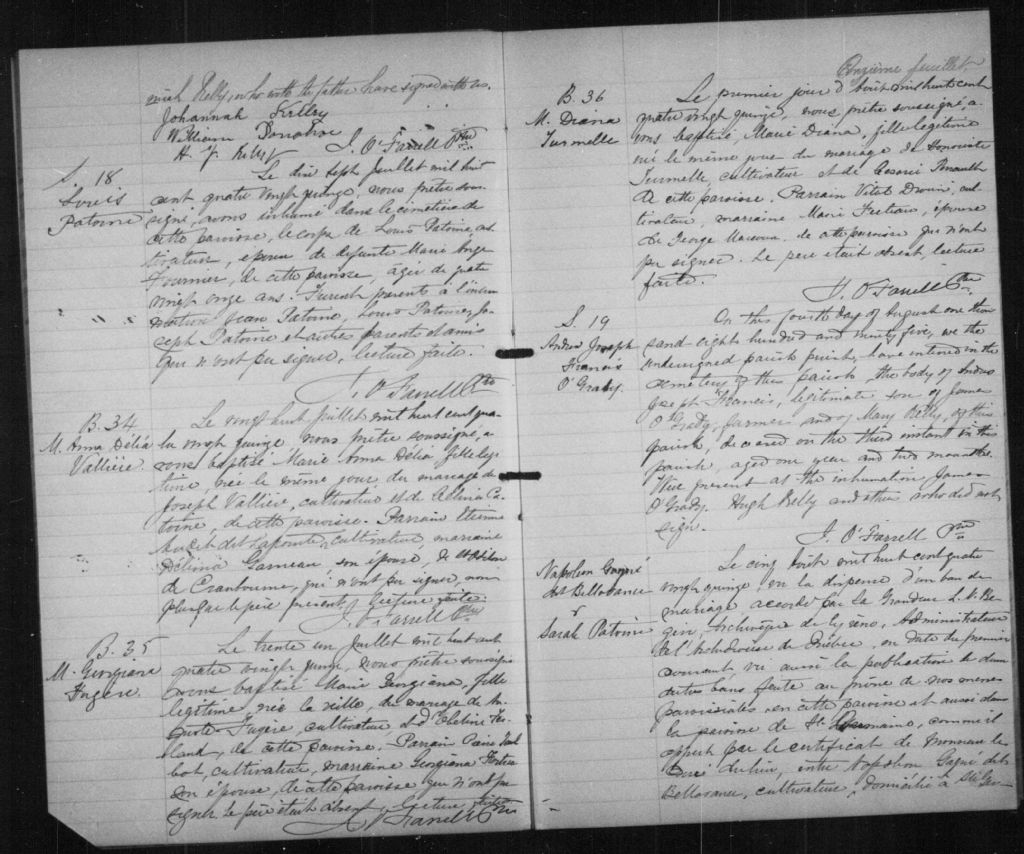 miah Kelly, who with the father have signed with us.
Johannah Kelly
William Donahoe
H. J. Kelly
J. O'Farrell Ptre
S. 18
Louis
Patoine
Le dix sept Juillet mil huit
cent quatre vingt quinze, nous prêtre sous-
signé, avons inhumé dans le cimetière de
cette paroisse, le corps de Louis Patoine, cul-
tivateur, époux de défunte Marie
Fournier, de cette paroisse, agé de quatre
vingt onze ans. Furent présents à l'inhu-
mation Jean Patoine, Louis Patoine, Jo-
seph Patoine et autres parents et amis
qui n'ont pu signer, lecture faite.
J. O'Farrell Ptre
B. 34
M. Anna Délia
Vallière
Le vingt huit juillet mil huit cent qua-
tre vingt quinze nous prêtre soussigné, a-
vons baptisé Marie Anna Délia fille légi-
time née le même jour du mariage de
Joseph Vallière, cultivateur et de Célina Pa-
toine, de cette paroisse. Parrain Etienne
dit Lapointe, cultivateur, marraine
Délina Garneau, son épouse, de St Odilon
de Cranbourne, qui n'ont pu signer, non
plus que le père présent. Lecture faite.
J. O'Farrell Ptre
B. 35
M. Georgiana
Fugère.
Le trente un Juillet mil huit cent
quatre vingt quinze, nous prêtre soussigné
avons baptisé Marie Georgiana, fille
légitime, née la veille, du mariage de
Fugère, cultivateur et d'
de cette paroisse. Parrain
bot, cultivateur, marraine Georgiana
son épouse, de cette paroisse qui n'ont pu
signer. Le père était absent. Lecture faite.
J. O'Farrell Ptre
Onzième feuillet
B. 36
M. Diana
Turmelle
Le premier jour d'Août mil huit cent
quatre vingt quinze, nous prêtre soussigné, a-
vons baptisé, Marie Diana, fille légitime
née le même jour du mariage de Honoré
Turmelle, cultivateur et de Césarie Perreault
de cette paroisse. Parrain Vital Drouin, cul-
tivateur, marraine Marie épouse
de George Marcoux de cette paroisse qui n'ont
pu signer. Le père était absent, lecture
faite.
J. O'Farrell Ptre
S. 19
Andrew Joseph
Francis
O'Grady.
On this fourth day of August one thou-
sand eight hundred and ninety five, we the
undersigned parish priest, have interred in the
cemetery of this parish, the body of Andrew
Joseph Francis, legitimate son of James
O'Grady, farmer and of Mary Kelly, of this
parish, deceased on the third instant in this
parish, aged one year and two months.
Were present at the inhumation James
O'Grady, Hugh Kelly and others who did not
sign.
J. O'Farrell Ptre
Napoléon Gagné
dit Bellavance
&
Sarah Patoine
Le cinq Août mil huit cent quatre
vingt quinze, vu la dispense d'un ban de
mariage accordée par Sa Grandeur L. N. Bé-
gin, Archevêque de Cyrène, Administrateur
de l'Archidiocèse de Québec, en date du premier
courant, vu aussi la publication de deux
autres bans faite au prône de nos messes
paroissiales en cette paroisse et aussi dans
la paroisse de St. Romain, comme il
appert par le certificat de Monsieur le
Curé du lieu, entre Napoléon Gagné dit
Bellavance, cultivateur, domicilié à St.